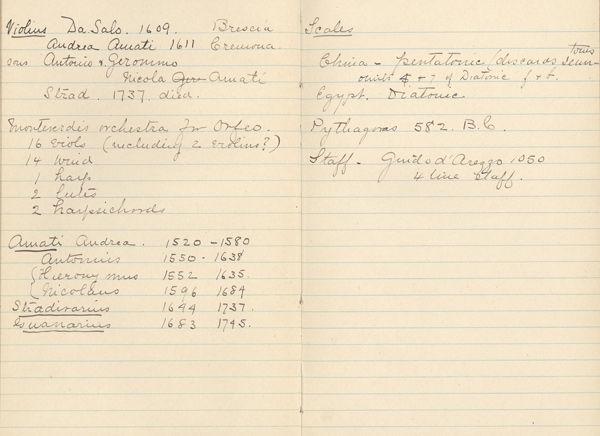 Violins Da Salo. 1609. Brescia
Andrea Amati 1611 Cremona.
sons Antonio & Geronimo
Nicola Amati
Strad. 1737. died.
Monteverdis orchestra for Orfeo.
16 viols (including 2 violins?)
14 wind
1 harp
2 lutes
2 harpsichords
Amati Andrea. 1520 - 1580
Antonius 1550 - 1638
Hieronymus 1552 1635.
Nicolaus 1596 1684
Stradivarius 1644 1737.
Guanarius 1683 1745.
Scales
China - Pentatonic (discards semi-
tones
omits 4 & 7 of Diatonic f & b.
Egypt. Diatonic
Pythagoras 582. B.C.
Staff - Guido d'Arezzo 1050
4 line staff.